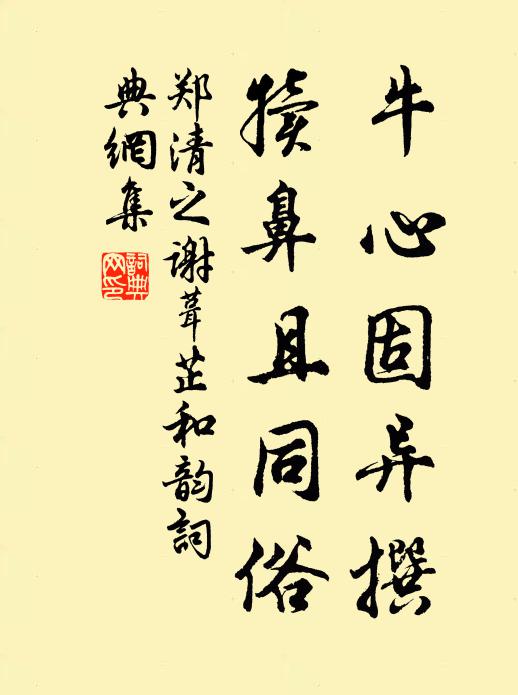 牛心固异撰
犊鼻且同俗
郑清之谢葺芷和韵詞
典網集
詞典
网印